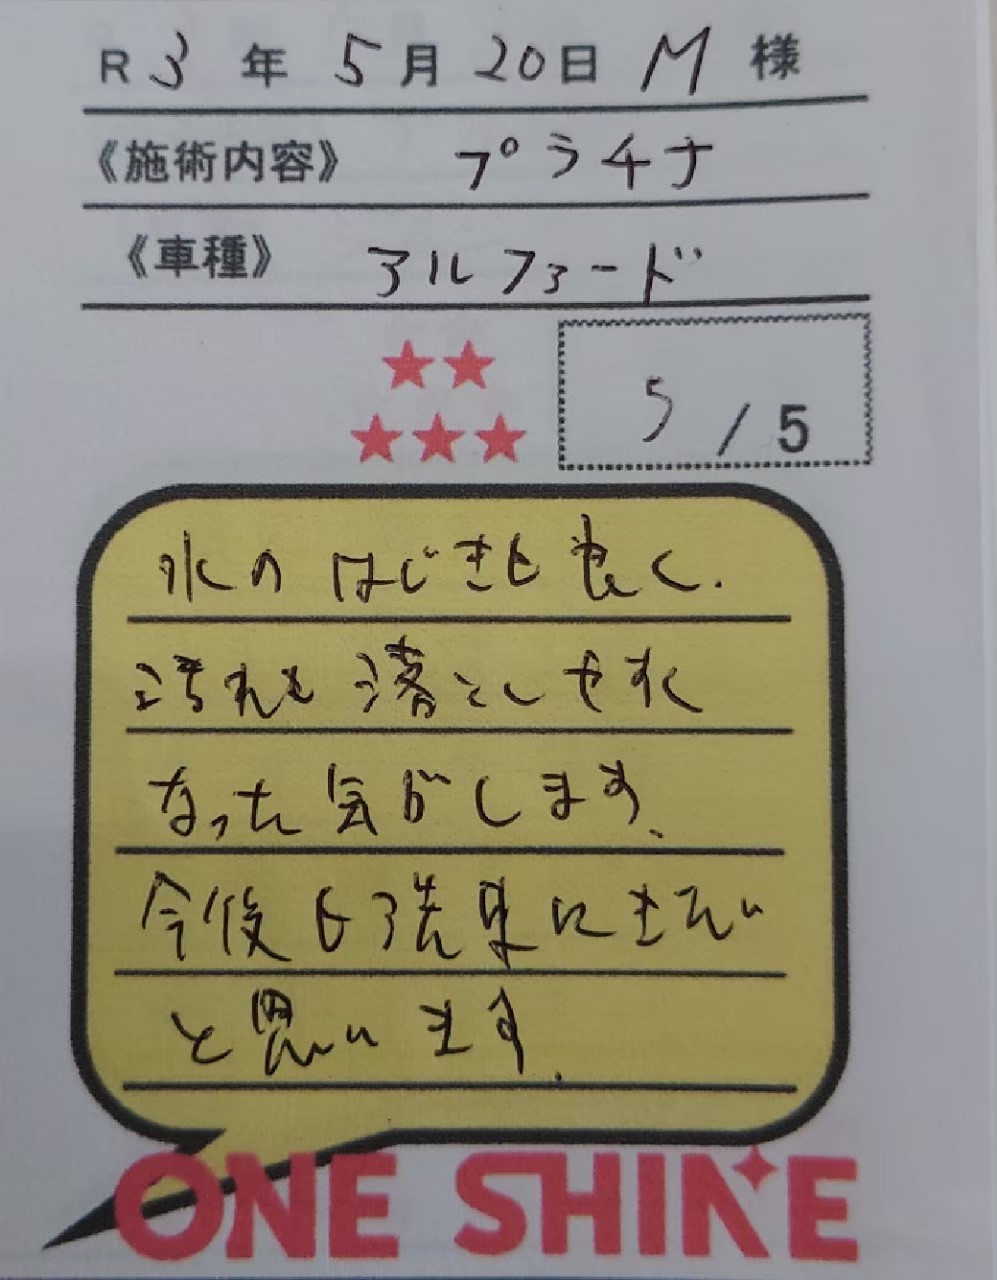 R 3 年 5 月 20 日 M 様
《施術内容》 プラチナ
《車種》 アルファード
5 / 5
水のはじきも良く.
汚れも落としやすく
なった気がします、
今後も洗車にきたい
と思います.
ONE SHINE